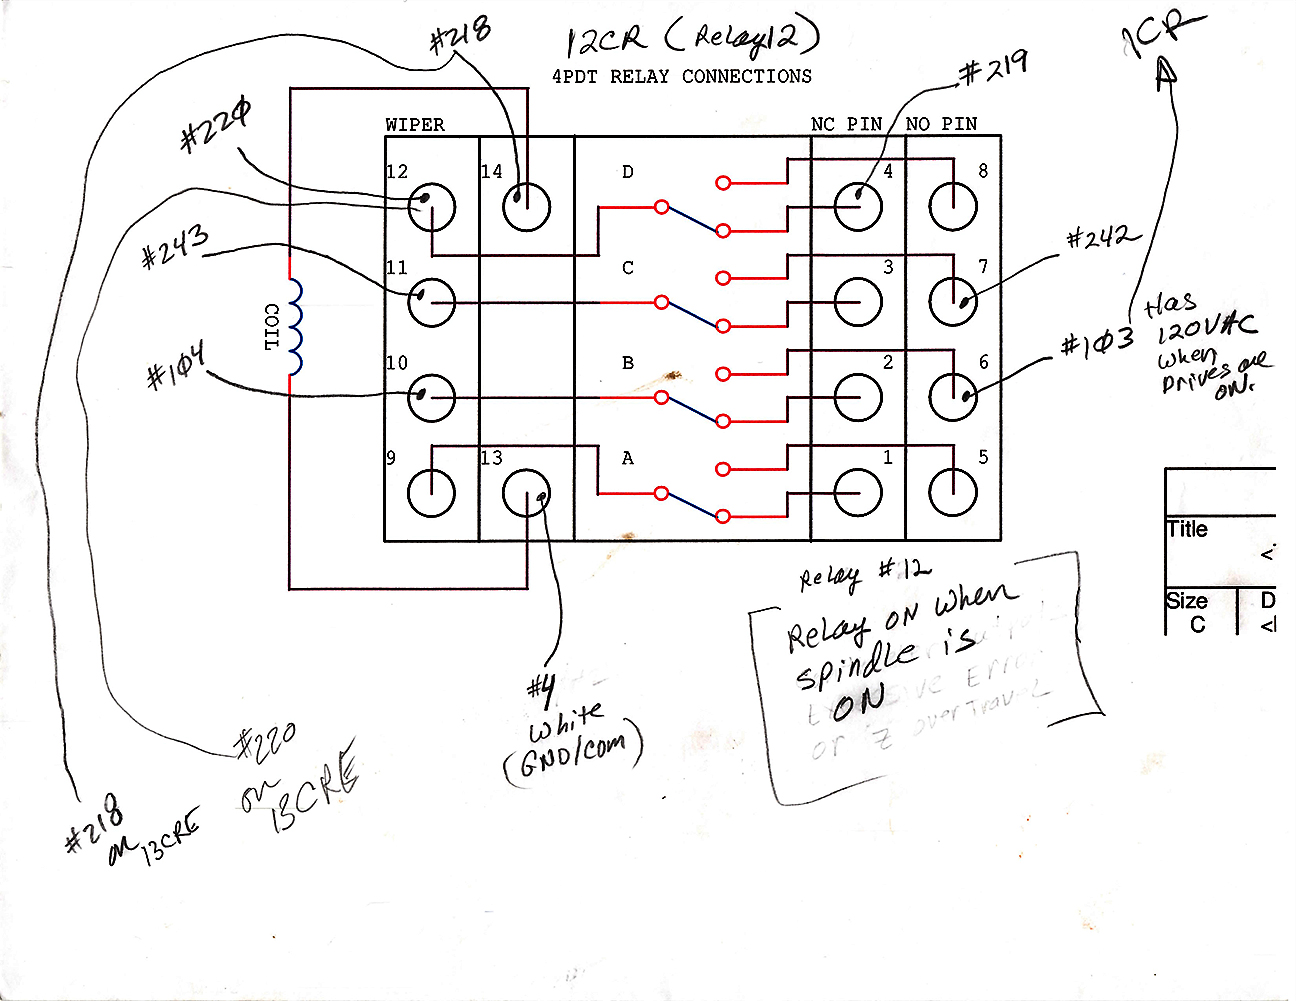 #218
12CR (Relay12)
1CR
4PDT RELAY CONNECTIONS
#219
#220
WIPER
NC PIN
NO PIN
12
14
D
4
8
#243
11
C
3
7
#242
COIL
#104
10
B
2
6
#103
Has
120VAC
when
Drives are
ON.
9
13
A
1
5
Title
<.
Size
D
C
<
Relay #12
Relay ON when
spindle is
ON
Error
or Z overTravel
#4
White
(GND/com)
#220
on
13CRE
#218
on 13CRE